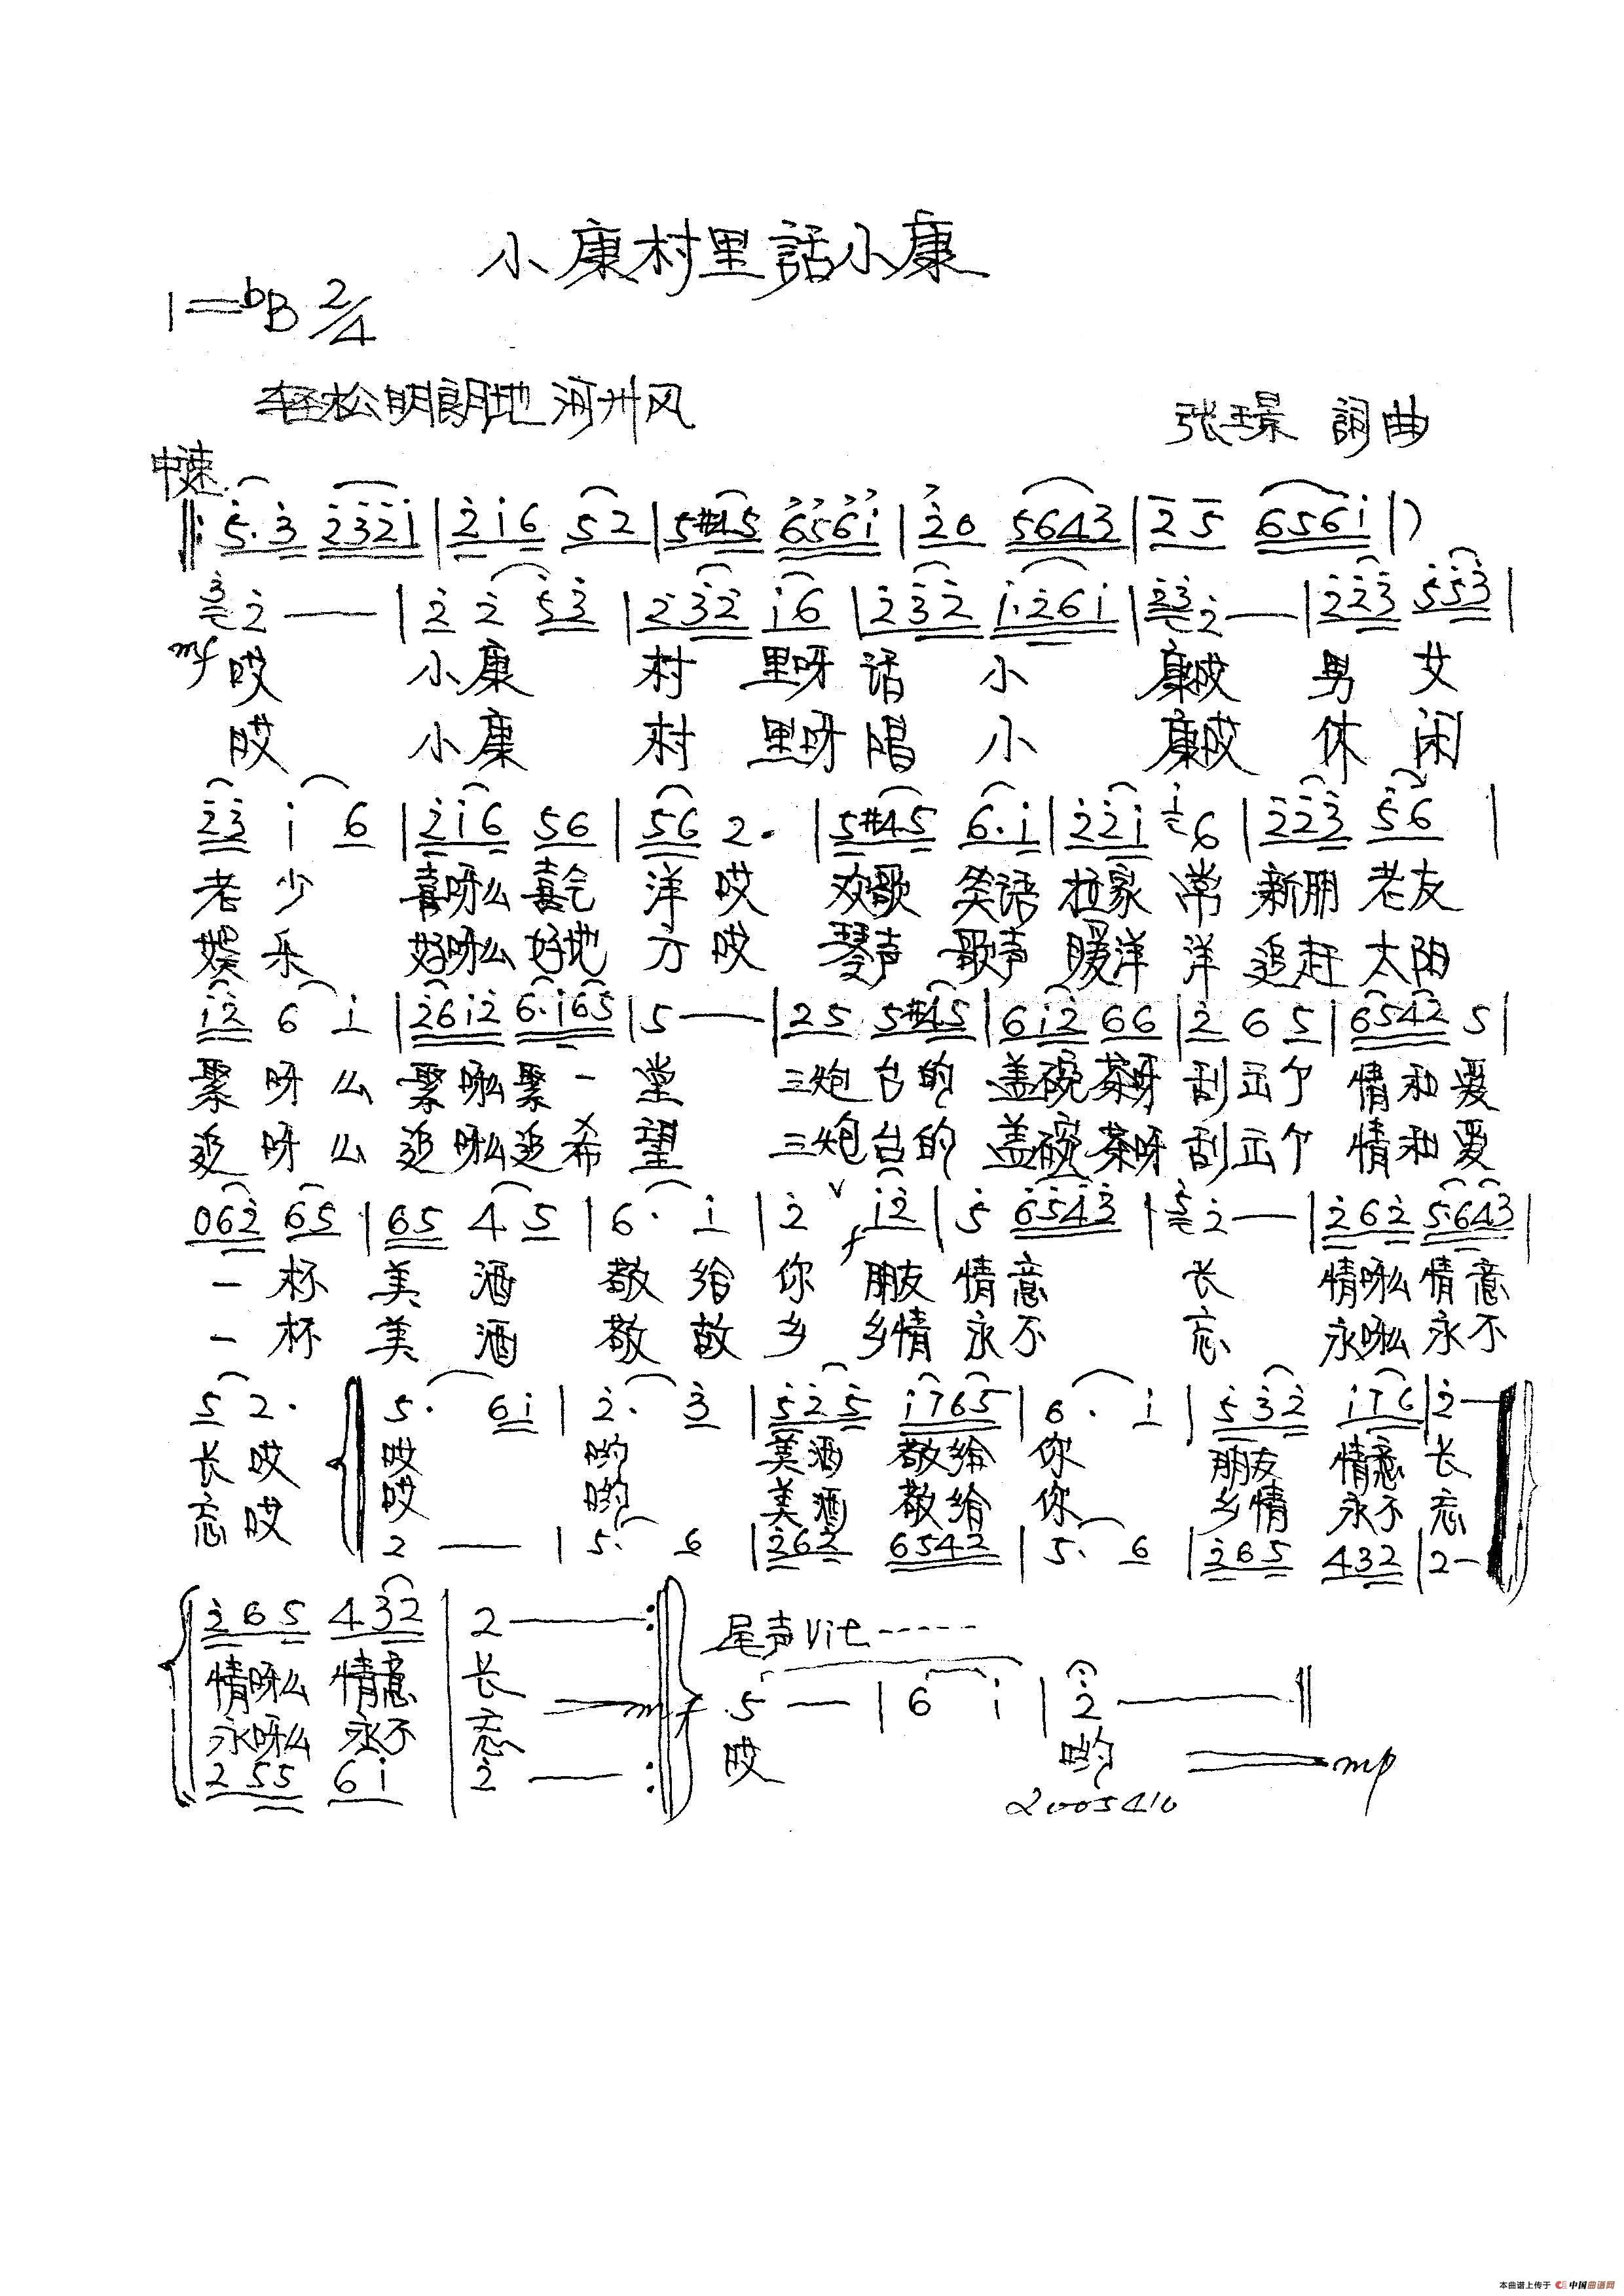 小康村里話小康
1=bB 2/4
轻松明朗地 河州风
张璟 詞曲
中速
‖: 5·3 2321 | 216 52 | 5#45 6561 | 20 5643 | 25 6561 |)
3 2 — | 2 2 53 | 232 16 | 232 1·261 | 23 2 — | 223 553 |
mf 哎 小康 村 里呀 话 小 康哎 男 女
哎 小康 村 里呀 唱 小 康哎 休 闲
23 1 6 | 216 56 | 56 2· | 5#45 6·1 | 221 1 6 | 223 56 |
老 少 喜呀么 喜气 洋 哎 欢歌 笑语 拉家 常 新朋 老友
娱 乐 好呀么 好地 方 哎 琴声 歌声 暖洋 洋 追赶 太阳
12 6 1 | 2612 6·165 | 5 — | 25 5#45 | 612 66 | 2 6 5 | 6542 5 |
聚 呀 么 聚呀么聚 一 堂 三炮 台的 盖碗 茶呀 刮 情和爱
追 呀 么 追呀么追 希 望 三炮 台的 盖碗 茶呀 刮 情和爱
062 65 | 65 4 5 | 6· 1 | 2 ∨ f 12 | 5 6543 | 5 2 — | 262 5·643 |
一 杯 美 酒 敬 给 你 朋友 情 意 长 情呀么 情 意
一 杯 美 酒 敬 故 乡 乡情 永 不 忘 永呀么 永 不
5 2· 5· 61 | 2· 3 | 525 1765 | 6· 1 | 532 176 | 2 —
长 哎 哎 哟 美酒 敬给 你 朋友 情意 长
忘 哎 哎 哟 美酒 敬给 你 乡情 永不 忘
2 — | 5· 6 | 262 6542 | 5· 6 | 265 432 | 2 —
265 432 | 2 — :‖
尾声 Vit-----
情呀么 情意 长 mf 5 — | 6 1 | 2 — ‖
永呀么 永不 忘 哎 哟 mp
255 61 | 2 — :‖
2005410
本曲谱上传于 中国曲谱网